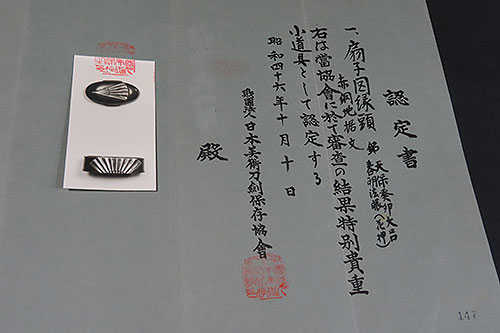 認定書
一、扇子図縁頭
銘 天保癸卯大呂
春明法眼(花押)
赤銅地据文
右は當協會に於て審査の結果特別貴重
小道具として認定する
昭和四十六年十月十日
財團法人日本美術刀劍保存協會
殿
147